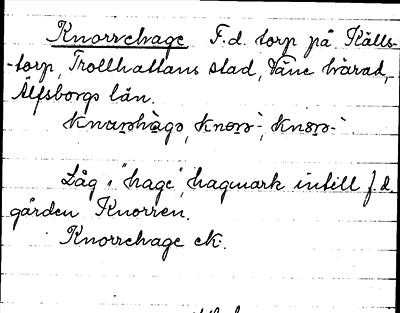 Knorrehage F.d. torp på Källs-
-torp, Trollhättans stad, Väne härad,
Älfsborgs län.
Låg i "hage", hagmark intill f.d.
gården Knorren.
Knorrehage ek.